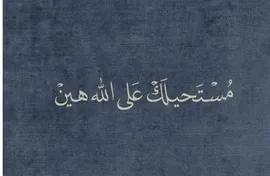 مُسْتَحيلَكْ عَلى الله هينْ